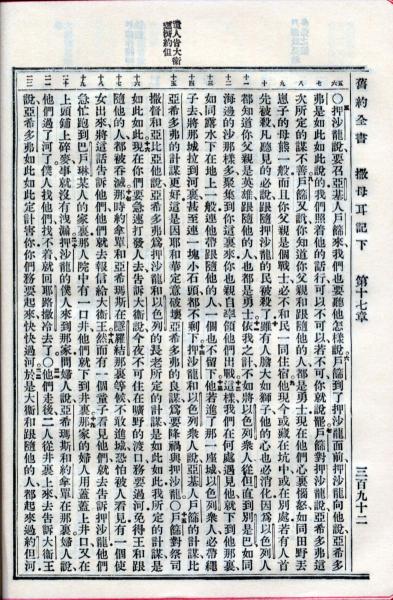 舊約全書 撒母耳記下 第十七章 三百九十二
〇押沙龍說要召亞基人戶篩來我們也要聽他怎樣說戶篩到了押沙龍面前押沙龍向他說亞希多
弗是如此如此說的我們照着他的話行可以不可以若不可你就說罷戶篩對押沙龍說亞希多弗這
次所定的謀不善戶篩又說你知道你父親和跟隨他的人都是勇士現在他們心裏惱怒如同田野丟
崽子的母熊一般而且你父親是個戰士必不和民一同住宿他現今或藏在坑中或在別處若有人首
先被殺凡聽見的必說跟隨押沙龍的民被殺了雖有人膽大如獅子他的心也必消化因為以色列人
都知道你父親是英雄跟隨他的人也都是勇士依我之計不如將以色列衆人從但直到別是巴如同
海邊的沙那樣多聚集到你這裏來你也親自率領他們出戰這樣我們在何處遇見他就下到他那裏
如同露水下在地上一般連他帶跟隨他的人一個也不留下他若進了那一座城以色列衆人必帶繩
子去將那城拉到河裏甚至連一塊小石頭都不剩下押沙龍和以色列衆人說亞基人戶篩的計比
亞希多弗的計謀更好這是因耶和華定意破壞亞希多弗的良謀為要降禍與押沙龍〇戶篩對祭司
撒督和亞比亞他說亞希多弗為押沙龍和以色列的長老所定的計謀是如此如此我所定的計謀是
遣人告大衛
速渡約但
如此如此現在你們要急速打發人去告訴大衛說今夜不可住在曠野的渡口務要過河免得王和跟
隨他的人都被吞滅那時約拿單和亞希瑪斯在隱羅結那裏等候不敢進城恐怕被人看見有一個使
女出來將這話告訴他們他們就去報信給大衛王然而有一個童子看見他們就去告訴押沙龍他們
急忙跑到巴戶琳某人的家裏那人院中有一口井他們就下到井裏那家的婦人用蓋蓋上井口又在
上頭鋪上碎麥事就沒有洩漏押沙龍的僕人來到那家問婦人說亞希瑪斯和約拿單在那裏婦人說
他們過了河了僕人找他們找不着就回耶路撒冷去了〇他們走後二人從井裏上來去告訴大衛王
說亞希多弗如此如此定計害你你們務要起來快快過河於是大衛和跟隨他的人都起來過約但河